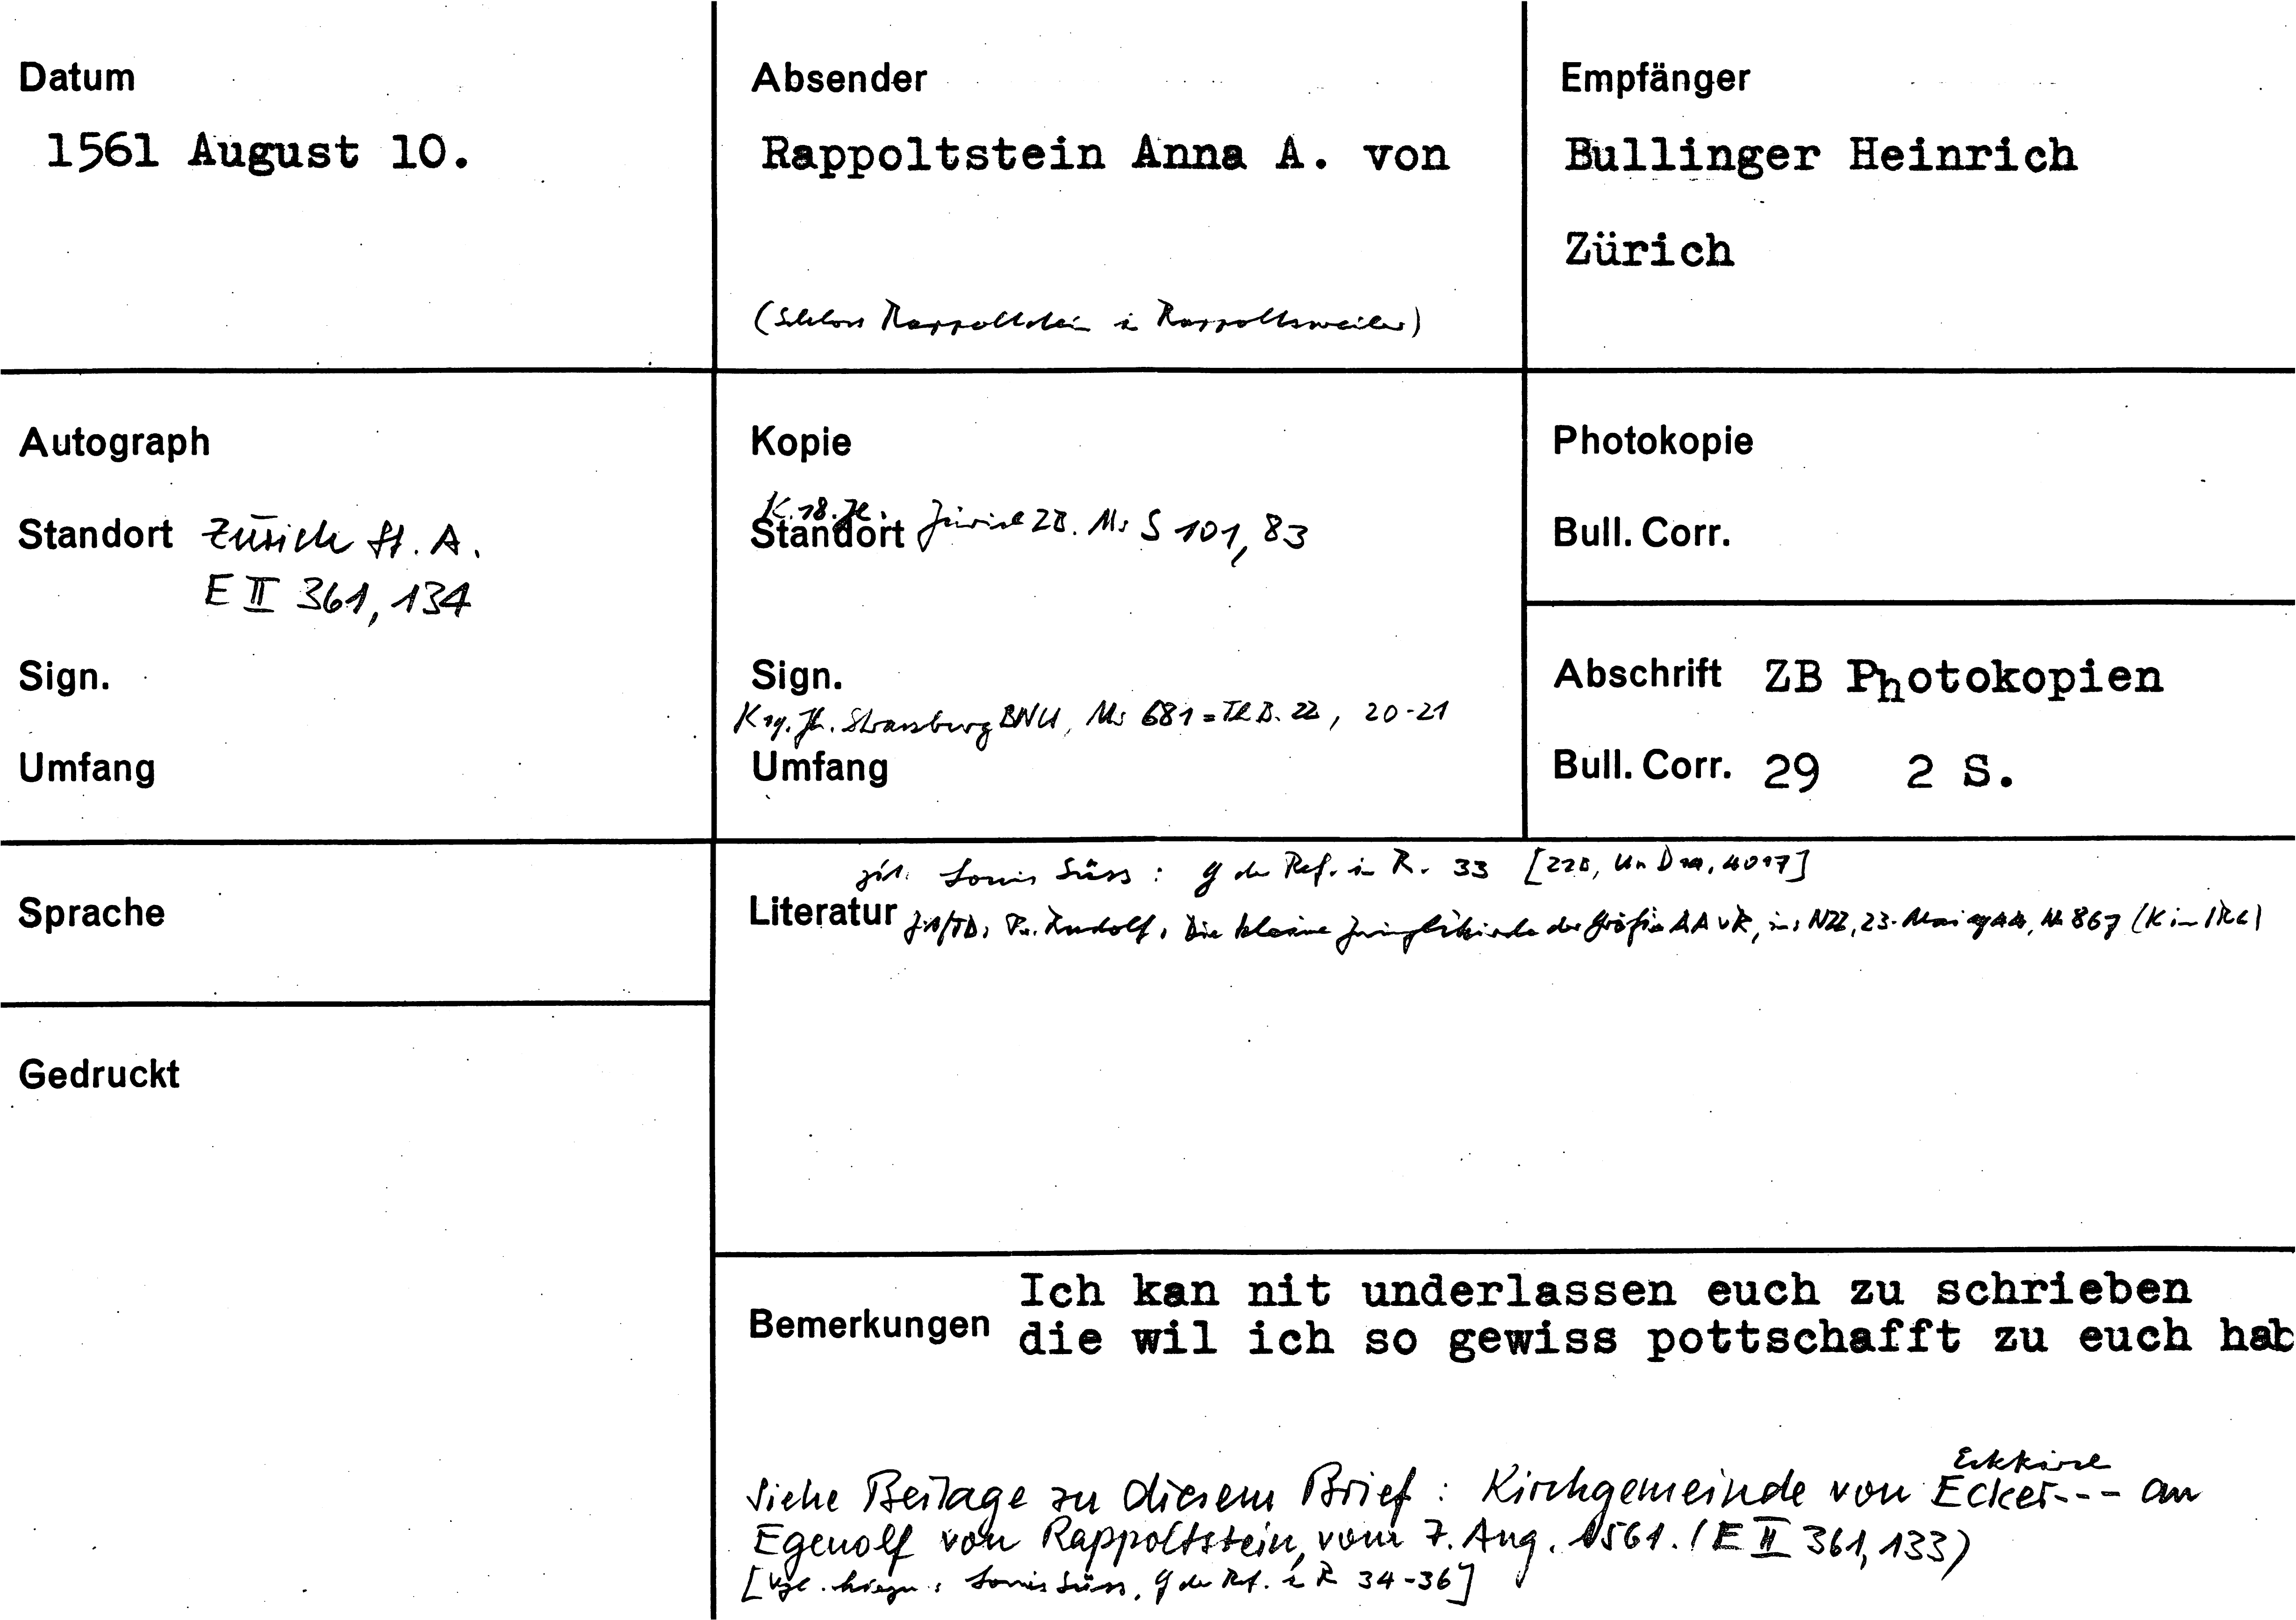 Datum
1561 August 10.
Absender
Rappoltstein Anna A. von
(Schloss Rappoltstein in Rappoltsweiler)
Empfänger
Bullinger Heinrich
Zürich
Autograph
Standort Zürich St. A.
E II 361, 134
Sign.
Umfang
Kopie
K. 18. Jh.
Standort Zürich ZB. Ms S 101, 83
Sign.
K 19. Jh. Strassburg BNU, Ms 681 = Th B. 22, 20-21
Umfang
Photokopie
Bull. Corr.
Abschrift ZB Photokopien
Bull. Corr. 29 2 S.
Sprache
Gedruckt
zit. Louis Süss: G der Ref. in R. 33
Literatur Rudolf, Die kleine Zwinglikirche der Gräfin AA v R, in: NZZ, 23. Mai 867 (K im IRG)
Bemerkungen
Ich kan nit underlassen euch zu schrieben
die wil ich so gewiss pottschafft zu euch hab
Eckkirch
Siehe Beilage zu diesem Brief: Kirchgemeinde von Ecker--- an
Egenolf von Rappoltstein, vom 7. Aug. 1561. (E II 361, 133)
[Vgl. hiezu: Louis Süss, G der Ref. in R 34-36]